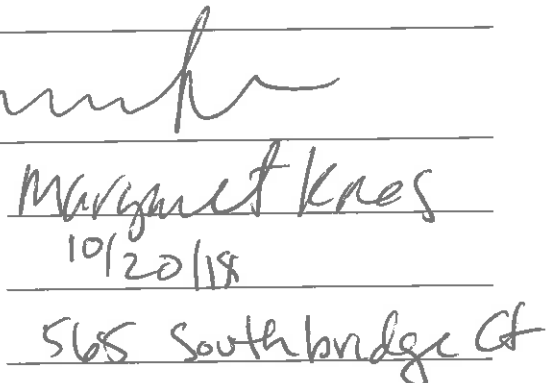 Margaret Kres
10/20/18
565 Southbridge Ct